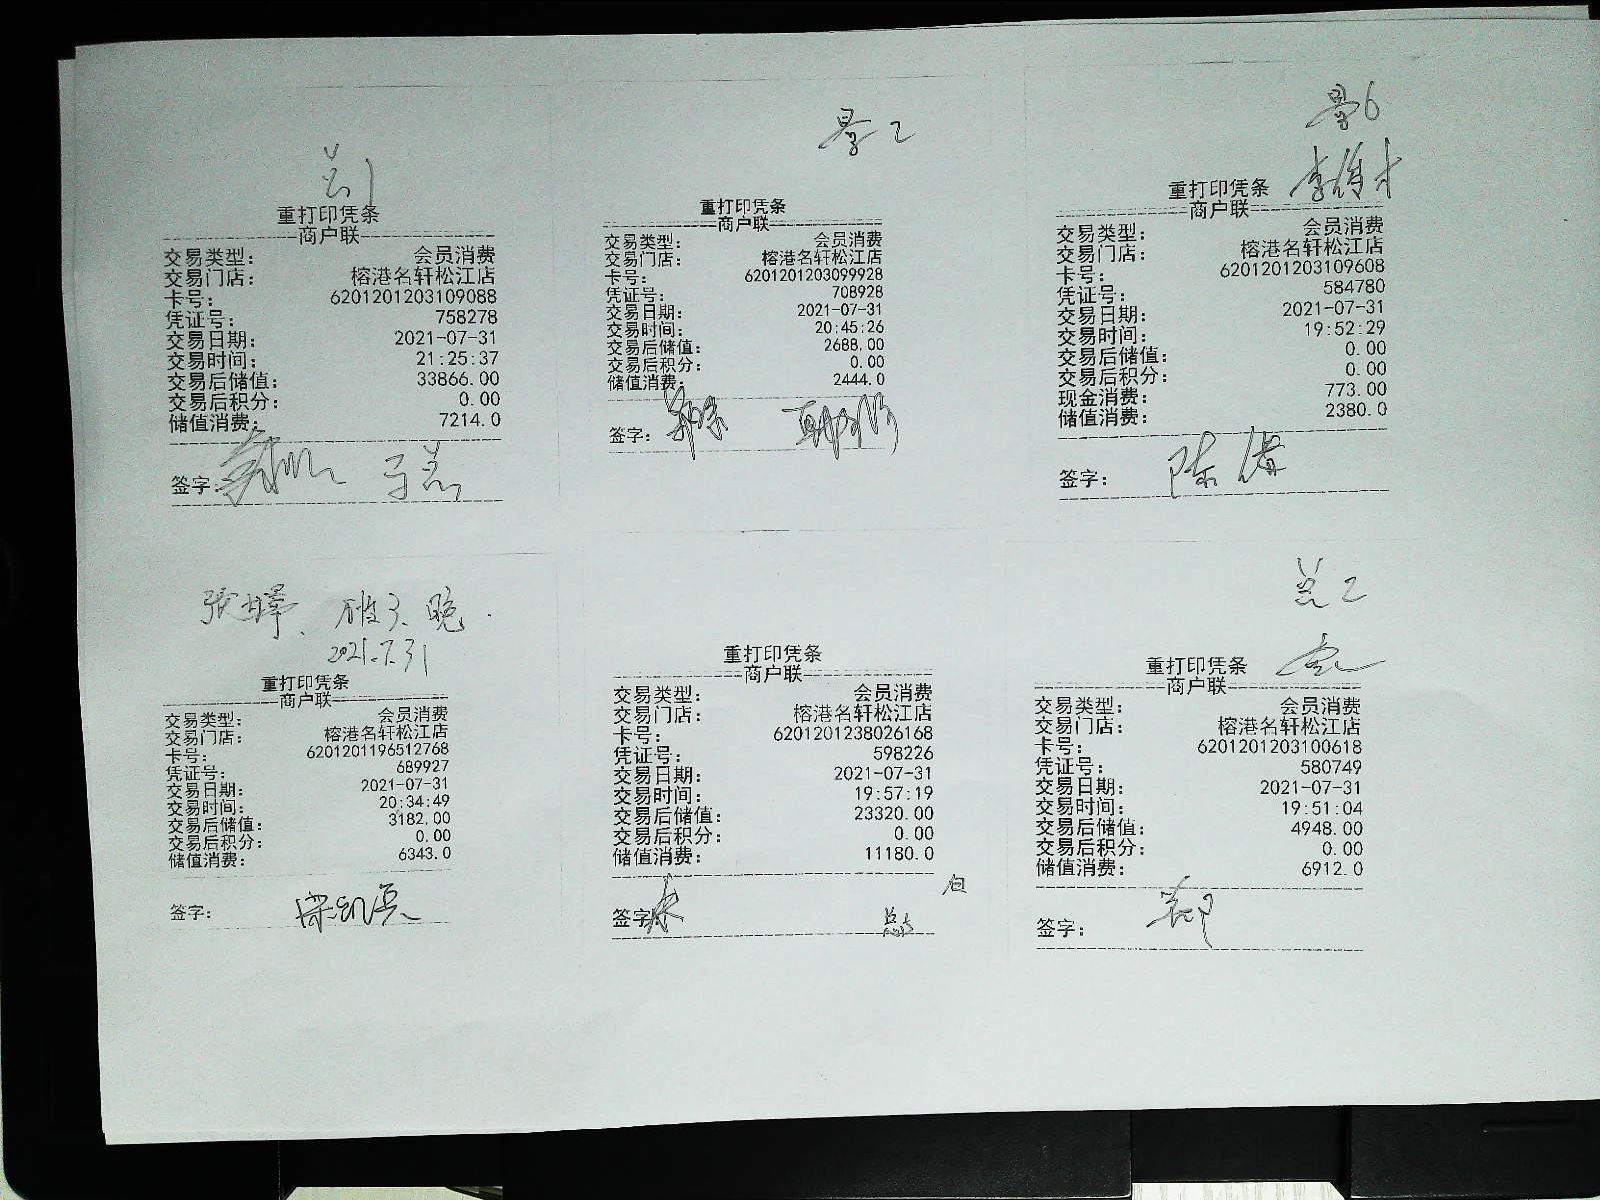 重打印凭条
商户联
交易类型： 会员消费
交易门店： 榕港名轩松江店
卡号： 6201201203109088
凭证号： 758278
交易日期： 2021-07-31
交易时间： 21:25:37
交易后储值： 33866.00
交易后积分： 0.00
储值消费： 7214.0
签字：
景2
重打印凭条
商户联
交易类型： 会员消费
交易门店： 榕港名轩松江店
卡号： 6201201203099928
凭证号： 708928
交易日期： 2021-07-31
交易时间： 20:45:26
交易后储值： 2688.00
交易后积分： 0.00
储值消费： 2444.0
签字：
景6
重打印凭条
商户联
交易类型： 会员消费
交易门店： 榕港名轩松江店
卡号： 6201201203109608
凭证号： 584780
交易日期： 2021-07-31
交易时间： 19:52:29
交易后储值： 0.00
交易后积分： 0.00
现金消费： 773.00
储值消费： 2380.0
签字： 陈
2021.7.31
重打印凭条
商户联
交易类型： 会员消费
交易门店： 榕港名轩松江店
卡号： 6201201196512768
凭证号： 689927
交易日期： 2021-07-31
交易时间： 20:34:49
交易后储值： 3182.00
交易后积分： 0.00
储值消费： 6343.0
签字：
重打印凭条
商户联
交易类型： 会员消费
交易门店： 榕港名轩松江店
卡号： 6201201238026168
凭证号： 598226
交易日期： 2021-07-31
交易时间： 19:57:19
交易后储值： 23320.00
交易后积分： 0.00
储值消费： 11180.0
签字
总2
重打印凭条
商户联
交易类型： 会员消费
交易门店： 榕港名轩松江店
卡号： 6201201203100618
凭证号： 580749
交易日期： 2021-07-31
交易时间： 19:51:04
交易后储值： 4948.00
交易后积分： 0.00
储值消费： 6912.0
签字：